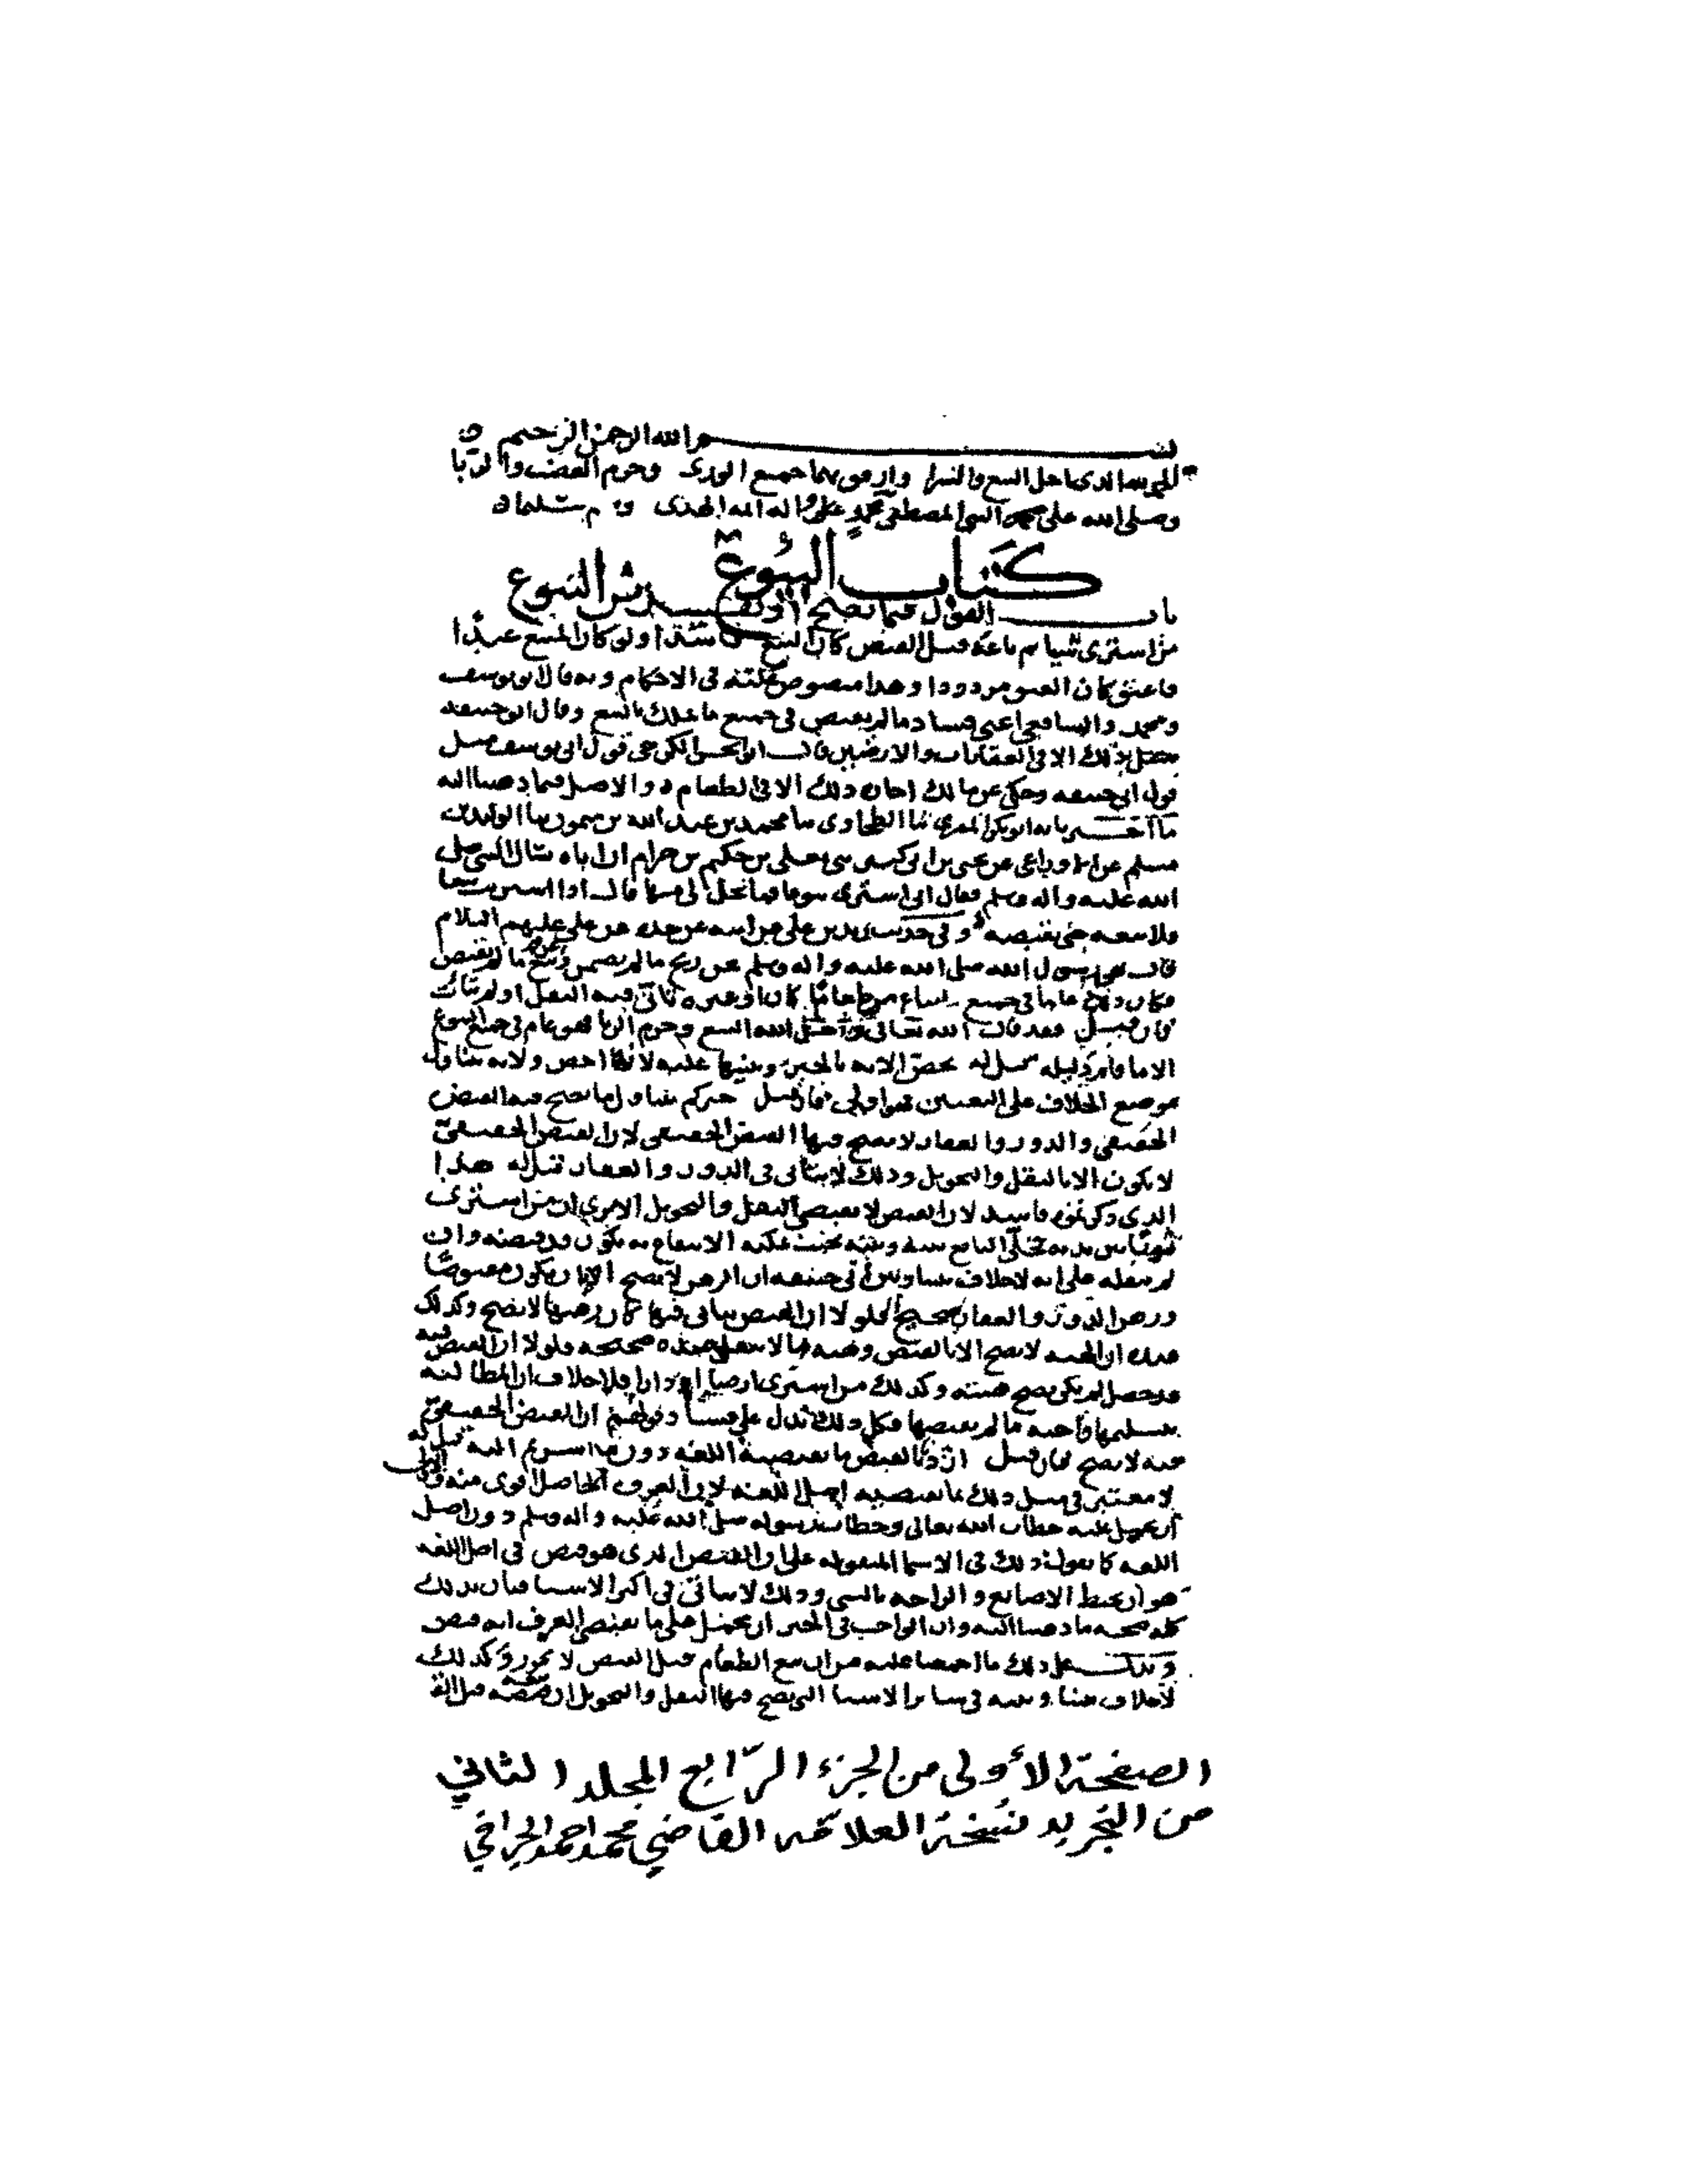 بسم الله الرحمن الرحيم
الحمد لله الذي احل البيع والشرا وارفق بهما جميع الورى وحرم الغصب والربا
وصلى الله على النبي المصطفى محمد وعلى اله ائمه الهدى وسلم تسليما
كتاب البيوع
باب القول فيما يصح او يفسد من البيوع
من اشترى شيا ثم باعه قبل القبض كان البيع فاسدا ولو كان المبيع عبدا
فاعتق كان العتق مردودا وهذا منصوص عليه في الاحكام وبه قال ابو يوسف
ومحمد والشافعي اعني فساد ما لم يقبض في جميع ما يملك بالبيع وقال ابو حنيفه
مثل ذلك الا في العقارات والارضين قال ابو الحسن الكرخي قول ابي يوسف مثل
قول ابي حنيفه وحكي عن مالك اجازه ذلك الا في الطعام والاصل فيما ذهبنا اليه
ما اخبرنا به ابو بكر المقري ثنا الطحاوي ثنا محمد بن عبد الله بن ميمون ثنا الوليد بن
مسلم عن الاوزاعي عن يحيى بن ابي كثير يعلى بن حكيم بن حزام ان اباه سال النبي صلى
الله عليه واله وسلم فقال اني اشتري بيوعا فما يحل لي منها قال اذا اشتريت بيعا
فلا تبعه حتى تقبضه وفي حديث زيد بن علي عن ابيه عن جده عن علي عليهم السلام
قال نهى رسول الله صلى الله عليه واله وسلم عن ربح ما لم يضمن وعن بيع ما لم يقبض
فكان ذلك عاما في جميع الاشياء من طعام كان او غيره تاتى فيه النقل او لم يتات
فان قيل فقد قال الله تعالى واحل الله البيع وحرم الربا فهو عام في جميع البيوع
الا ما قام دليله قيل له نخص الايه بالخبر ونبنيها عليه لانه اخص ولانه يتناول
موضع الخلاف على التعيين فهو اولى فان قيل خبركم يتناول ما يصح فيه القبض
الحقيقي والدور والعقار لا يصح فيها القبض الحقيقي لان القبض الحقيقي
لا يكون الا بالنقل والتحويل وذلك لا يتاتى في الدور والعقار قيل له هذا
الذي ذكرتموه فاسد لان القبض لا يقتضي النقل والتحويل الا ترى ان من اشترى
ثوبا بين يديه فخلى البايع بينه وبينه بحيث يمكنه الانتفاع به يكون قد قبضه وان
لم ينقله على انه لا خلاف بيننا وبين ابي حنيفه ان الرهن لا يصح الا بان يكون مقبوضا
ورهن الدور والعقار صحيح فلولا ان القبض يتاتى فيها كان رهنها لا يصح وكذلك
عنده ان الهبه لا تصح الا بالقبض وهبه ما لا ينقل عنده صحيحه فلولا ان القبض فيه
قد حصل لم يكن يصح هبته وكذلك من اشترى ارضا او دارا فلا خلاف ان المطالبه
بتسليمها واجبه ما لم يقبضها فكل ذلك يدل على فساد قولهم ان القبض الحقيقي
فيه لا يصح فان قيل ان القبض ما تقتضيه اللغه دون ما اشرتم اليه قيل له
لا معتبر في مثل ذلك بما يقتضيه اصل اللغه لان العرف الحاصل اقوى منه والواجب
ان يحمل عليه خطاب الله تعالى وخطاب رسوله صلى الله عليه واله وسلم دون اصل
اللغه كما نقول ذلك في الاسما المنقوله على ان القبض الذي هو قبض في اصل اللغه
هو ان يحيط الاصابع والراحه بالشي وذلك لا يتاتى في اكثر الاشيا فبان بذلك
كله صحه ما ذهبنا اليه وان الواجب في الخبر ان يحمل على ما يقتضي العرف انه قبض
ويدل على ذلك ما اجمعنا عليه من ان بيع الطعام قبل القبض لا يجوز وكذلك
لا خلاف بيننا وبينه في ساير الاشيا التي يصح فيها النقل والتحويل ان بيعه قبل
الصفحة الأولى من الجزء الرّابع المجلد الثاني
من التجريد نسخة العلامّه القاضي محمد احمد الجرافي